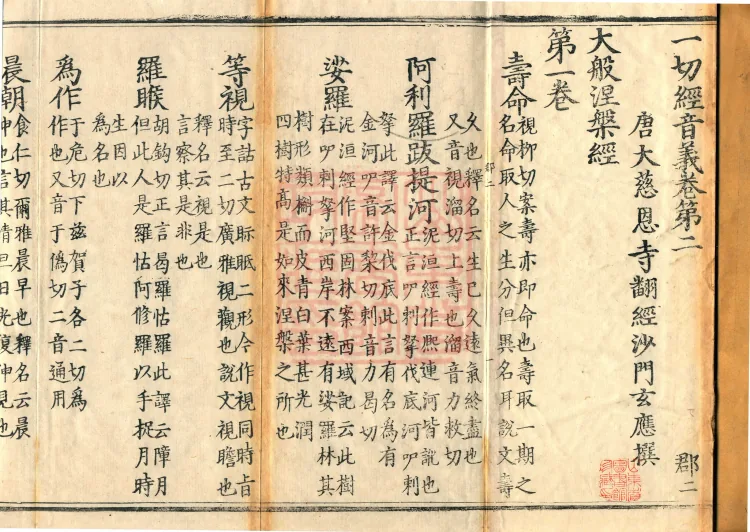 一切經音義卷第二 郡二
唐大慈恩寺翻經沙門玄應撰
大般涅槃經
第一卷
壽命視柳切案壽亦即命也壽取一期之
名命取人之生分但異名耳說文壽
郡二
久也釋名云生已久遠氣終盡也
又音視溜切上壽也溜音力救切
阿利羅跋提河泥洹經作熈連河皆訛也
正言叩剌拏伐底河叩剌
拏此譯云金伐底此言有名為有
金河叩音許棃切剌音力曷切
娑羅泥洹經作堅固林案西域記云此樹
在叩剌拏河西岸不遠有娑羅林其
樹形類槲而皮青白葉甚光潤
四樹特高是如來涅槃之所也
等視字詁古文眎眡二形今作視同時旨
時至二切廣雅視觀也說文視瞻也
釋名云視是也
言察其是非也
羅睺胡鈎切正言曷羅怙羅此譯云障月
但此人是羅怙阿修羅以手捉月時
生因以
為名也
為作于危切下兹賀子各二切為
作也又音于偽切二音通用
晨朝食仁切爾雅晨早也釋名云晨
伸也言其清旦日光復伸見也